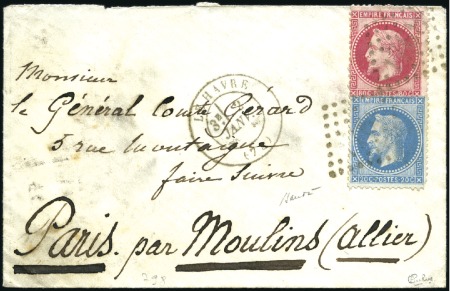 EMPIRE FRANCAIS
80C POSTES 80C
EMPIRE FRANCAIS
20C POSTES 20C
LE HAVRE
JANV
Monsieur
le Général Comte Gérard
5 rue Montaigne
faire Suivre
Paris par Moulins (Allier)